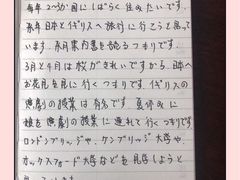 毎年 2〜3か国に しばらく 住みたいです。
来年 日本と イギリスへ 旅行に 行こうと 思って
います。
3月と4月は 桜が きれいですから、日本へ
お花見を 見に 行く つもりです。イギリスの
演劇の 授業は 有名です。夏休みに
娘を 演劇の 授業に 連れて 行くつもりです。
ロンドンブリッジや、ケンブリッジ 大学や
オックスフォード 大学などを 見学しようと